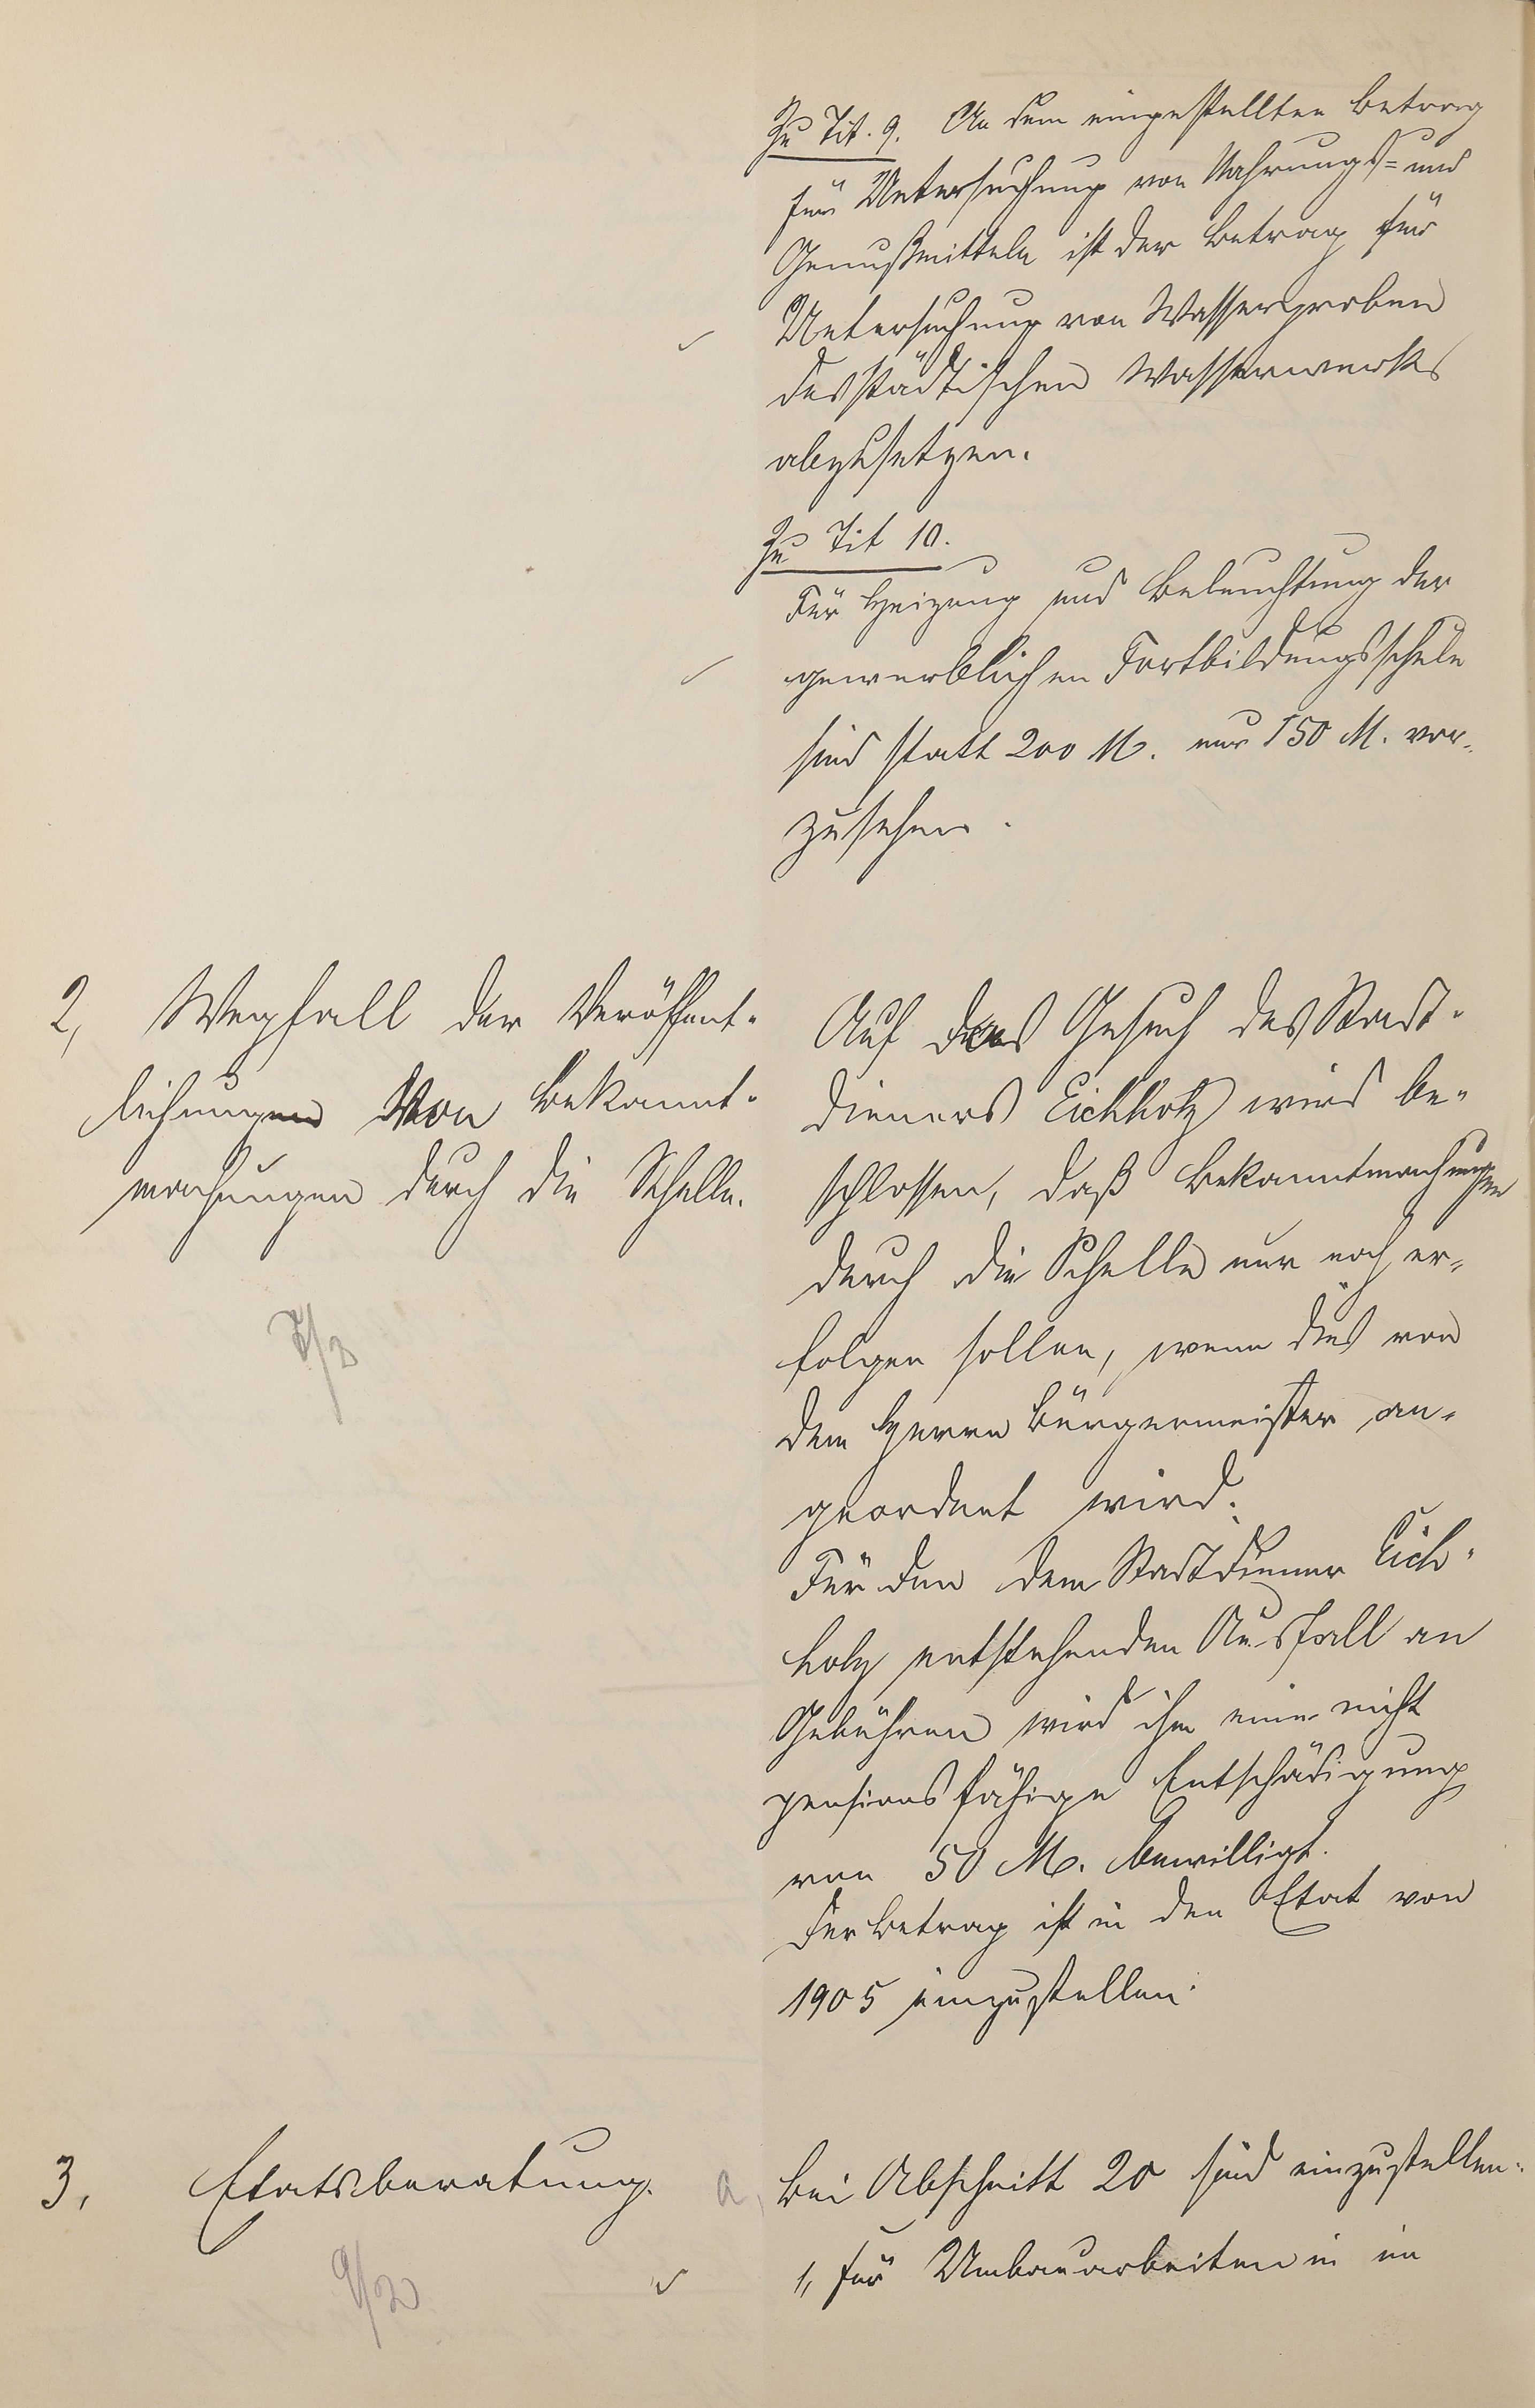 Zu Tit. 9. An dem eingestellten Betrag
für Untersuchung von Nahrungs= und
Genußmitteln ist der Betrag für
Untersuchung von Wasserproben
des städtischen Wasserwerks
abzusetzen.
Zu Tit 10.
Für Heizung und Beleuchtung der
gewerblichen Fortbildungsschule
sind statt 200 M. nur 150 M. vor-
zusehen.
2, Wegfall der Veröffent-
lichungen von Bekannt-
machungen durch die Schelle.
7/3
Auf das Gesuch des Stadt-
dieners Eichholz wird be-
schlossen, daß Bekanntmachungen
durch die Schelle nur noch er-
folgen sollen, wenn dies von
dem Herrn Bürgermeister an-
geordnet wird.
Für den dem Stadtdiener Eich-
holz entstehenden Ausfall an
Gebühren wird ihm eine nicht
pensionsfähige Entschädigung
von 50 M. bewilligt.
Der Betrag ist in den Etat von
1905 einzustellen.
3, Etatsberatung.
a, Bei Abschnitt 20 sind einzustellen.
1, für Umbauarbeiten in im